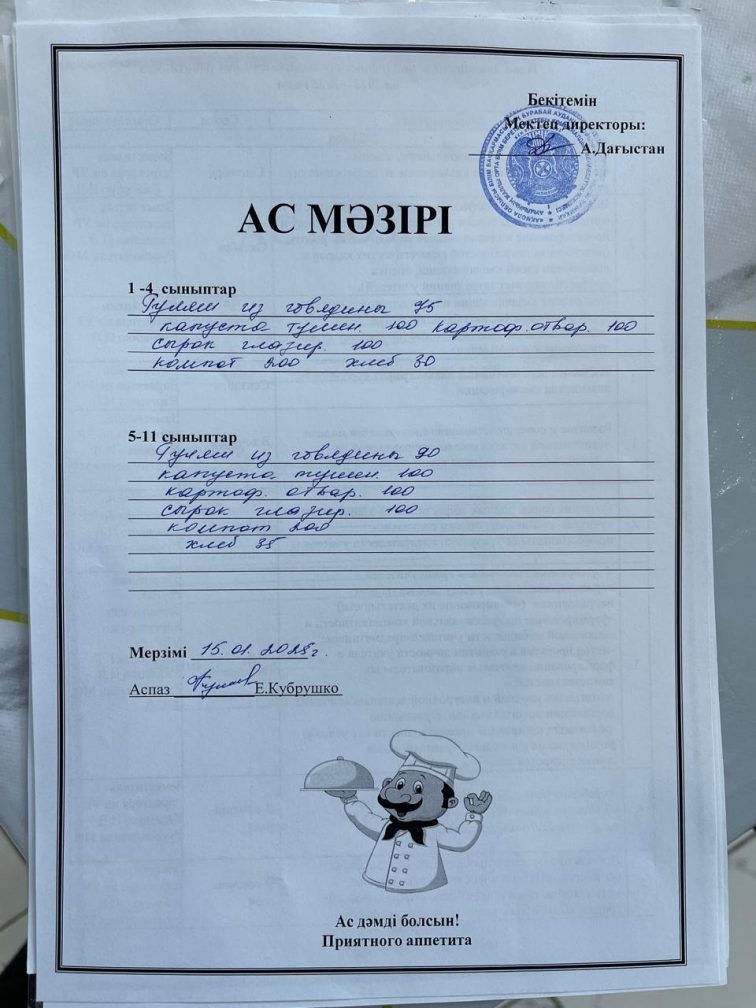 Бекітемін
Мектеп директоры:
А.Дағыстан
АС МӘЗІРІ
1 -4 сыныптар
Гуляш из говядины 75
капуста тушен. 100 картоф. отвар. 100
сырок глазир. 100
компот 200 хлеб 30
5-11 сыныптар
Гуляш из говядины 90
капуста тушен. 100
картоф. отвар. 100
сырок глазир. 100
компот 200
хлеб 35
Мерзімі 15.01.2025г.
Аспаз Е.Кубрушко
Ас дәмді болсын!
Приятного аппетита